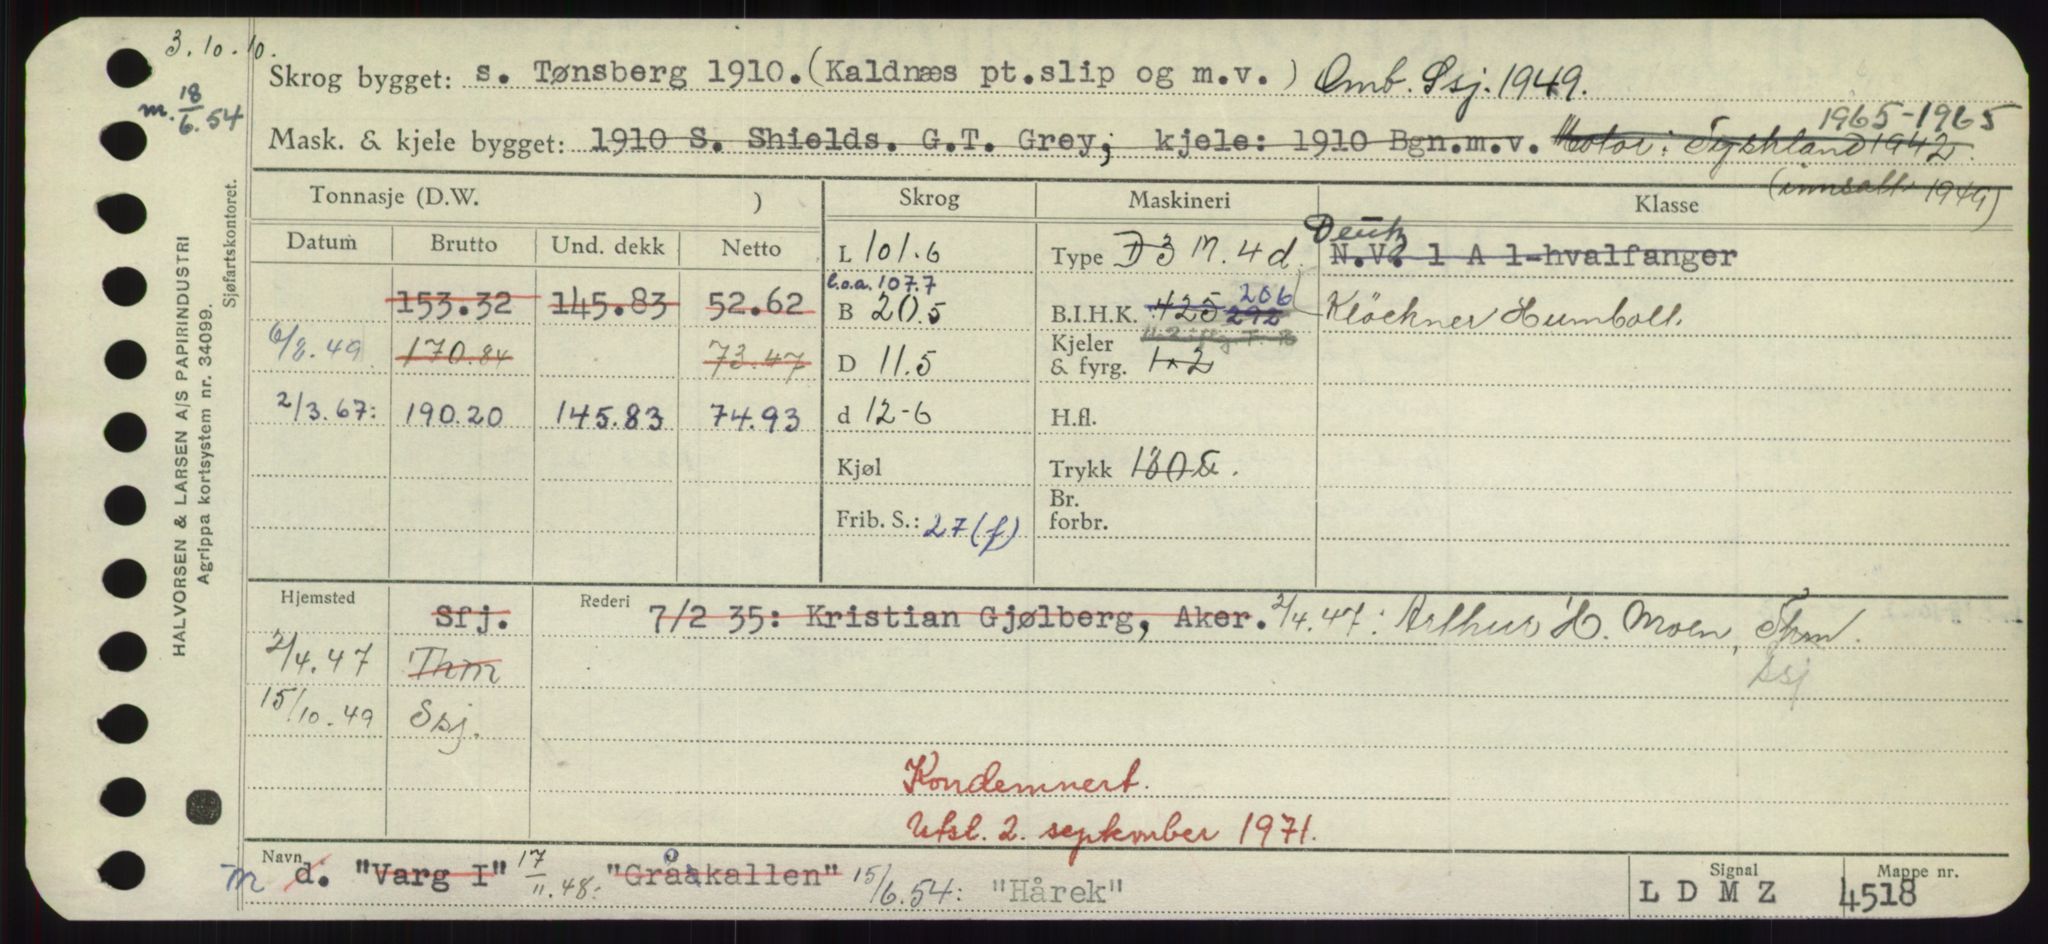 3.10.10.
Skrog bygget: s. Tønsberg 1910. (Kaldnæs pt.slip og m.v. ) Omb. Ssj. 1949.
m. 18/6.54
1965-1965
Mask. & kjele bygget: 1910 S. Shields. G.T. Grey, kjele: 1910 Bgn.m.v. Motor: Tyskland 1942.
(innsatt 1949)
Tonnasje (D.W. ) Skrog Maskineri Klasse
Datum Brutto Und. dekk Netto
L 101.6 Type D3 M. 4 d. Deutz N.V. 1 A 1-hvalfanger
l.o.a. 107.7
153.32 145.83 52.62 B 20.5 B.I.H.K. 425 292 206 Klöckner Humbolt.
6/8.49 170.84 73.47 D 11.5 Kjeler & fyrg. 1 x 2
2/3.67: 190.20 145.83 74.93 d 12-6 H.fl.
Kjøl Trykk 180
Br. forbr.
Frib. S.: 27 (f)
Hjemsted Sfj. Rederi 7/2 35: Kristian Gjølberg, Aker. 2/4.47: Arthur H. Moen, Thm.
2/4.47 Thm Ssj
15/10.49 Ssj.
Kondemnert.
Utsl. 2. september 1971.
Navn m d. "Varg I" 17/11.48: "Gråkallen" 15/6.54: "Hårek" Signal L D M Z Mappe nr. 4518
HALVORSEN & LARSEN A/S PAPIRINDUSTRI
Agrippa kortsystem nr. 34099.
Sjøfartskontoret.